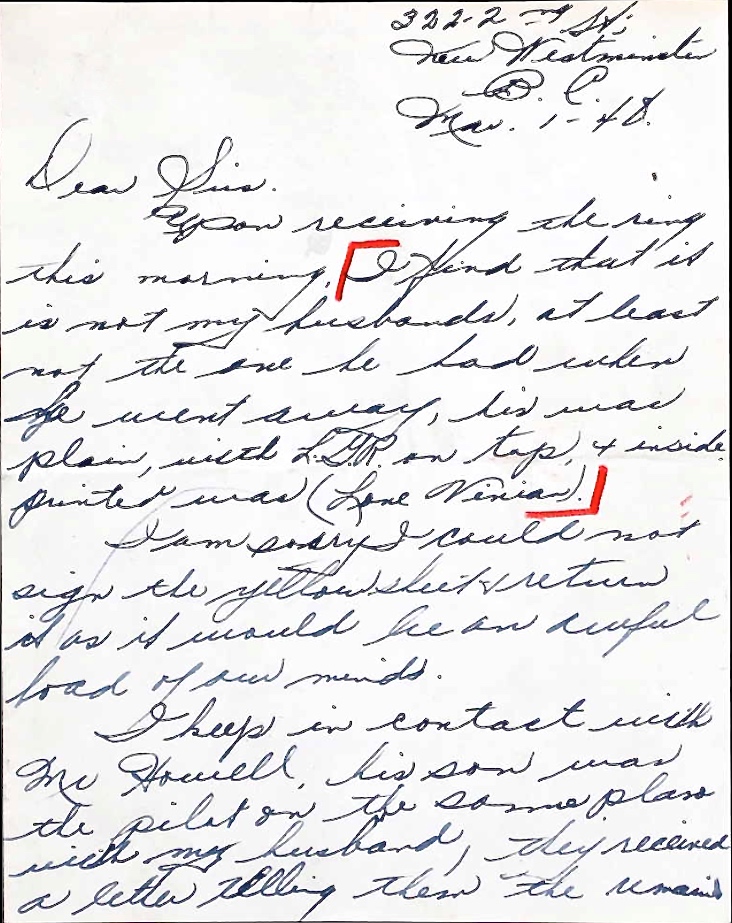 322-2nd St;
New Westminster
B. C.
Mar. 1-48.
Dear Sirs.
Upon receiving the ring
this morning, I find that it
is not my husbands, at least
not the one he had when
he went away, his was
plain, with L.G.R. on top, & inside
printed was (Love Venian).
I am sorry I could not
sign the yellow sheet & return
it as it would be an awful
load of our minds.
I keep in contact with
Mr Howell, his son was
the pilot on the same plane
with my husband, they received
a letter telling them the remains